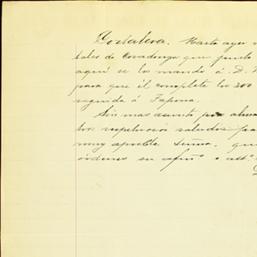 Gortaleza. Hasta ayer n
tales de Covadonga que junto
aqui se los mando á D. F
para que él complete los 300
segunda á Tapona.
Sin mas asunto por ahora
los respetuosos saludos pa
muy apreble Señora, que
órdenes su afmo. a attº